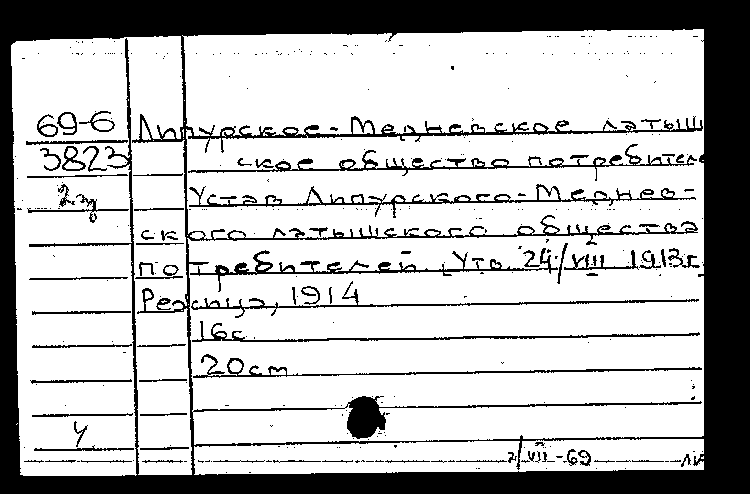 69-6 Липурское-Медневское латыш
3823 ское общество потребителе
2 эр Устав Липурского-Меднев-
ского латышского общества
потребителей [Утв. 24/VIII 1913 г.
Режица, 1914
16 с.
20 cm
Ч
2/VII-69 ЛИ